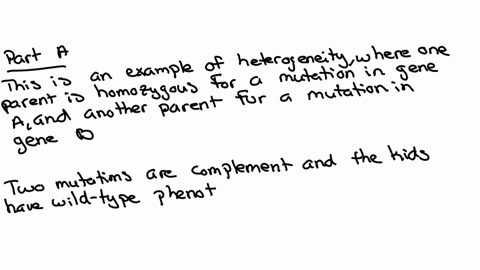 Part A
This is an example of heterogeneity, where one
parent is homozygous for a mutation in gene
A, and another parent for a mutation in
gene
Two mutations are complement and the kids
have wild-type phenot